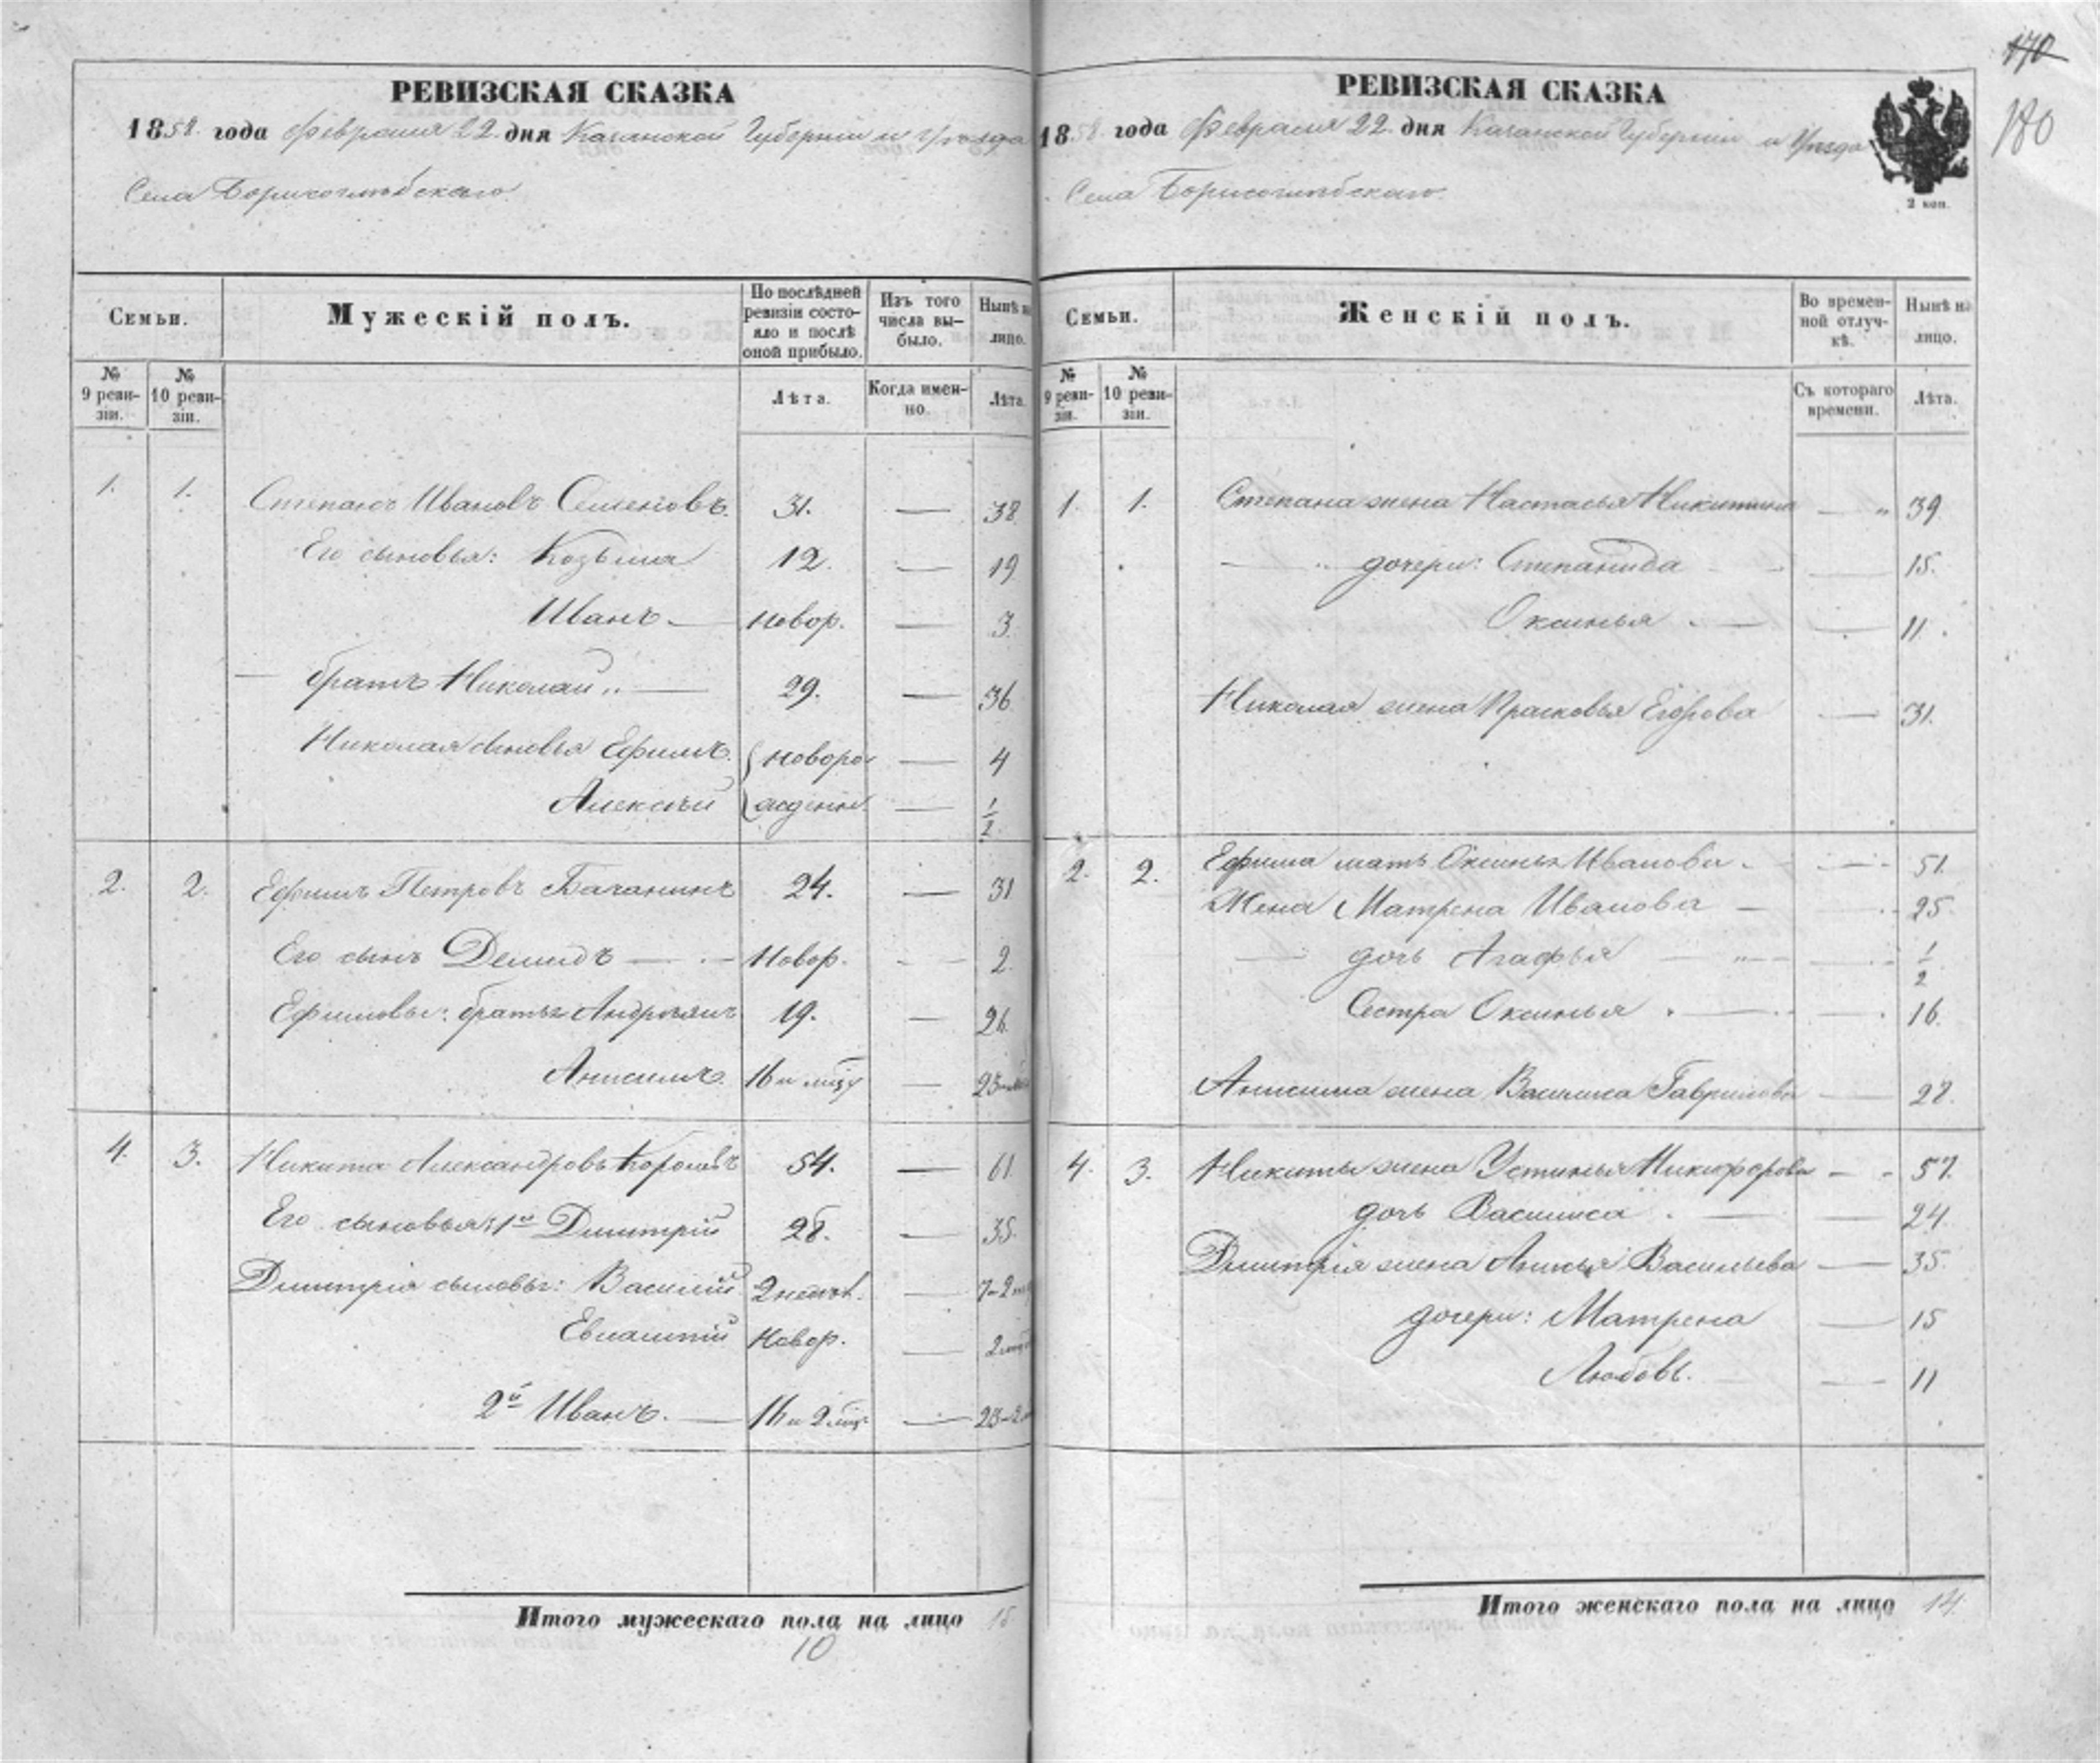 170
180
РЕВИЗСКАЯ СКАЗКА
1858 года Февраля 22 дня Казанской Губернии и Уѣзда
Села Борисоглѣбскаго
Семьи.
Мужескій полъ.
По послѣдней ревизіи состояло и послѣ оной прибыло.
Изъ того числа выбыло.
Нынѣ на лицо.
№ 9 ревизіи.
№ 10 ревизіи.
Лѣта.
Когда именно.
Лѣта.
1. 1. Степанъ Ивановъ Семеновъ. 31. — 38.
Его сыновья: Козьма 12. — 19
Иванъ — Новор. — 3.
— братъ Николай „ — 29. — 36
Николая сыновья Ефимъ { новоро- — 4
Алексѣй { жденн. — 1/2
2. 2. Ефимъ Петровъ 24. — 31
Его сынъ Демидъ — Новор. — 2.
Ефимовы: братья Андреянъ 19. — 26.
Анисимъ. 16 и — 23
4. 3. Никита Александровъ 54. — 61.
Его сыновья: 1й Дмитрій 28. — 35.
Дмитрія сыновья: Василій 2 недѣл. — 7-2
Евлампій Новор. — 2
2й Иванъ. — 16 и 2 — 23-2
Итого мужескаго пола на лицо 15
10
РЕВИЗСКАЯ СКАЗКА
1858 года Февраля 22 дня Казанской Губерніи и Уѣзда
Села Борисоглѣбскаго.
2 коп.
Семьи.
Женскій полъ.
Во временной отлучкѣ.
Нынѣ на лицо.
№ 9 ревизіи.
№ 10 ревизіи.
Съ котораго времени.
Лѣта.
1 1. Степана жена Настасья Никитина — „ 39
— „ дочери: Степанида — 15.
Оксинья — 11.
Николая жена Прасковья Егорова — 31.
2. 2. Ефима мать Оксинья Иванова — 51.
Жена Матрена Иванова — 25.
— дочь Агафья — 1/2
Сестра Оксинья — 16.
Анисима жена Василиса Гаврилова — 22.
4. 3. Никиты жена Устинья Никифорова — 57.
дочь Василиса — 24
Дмитрія жена Анисья Васильева — 35.
дочери: Матрена — 15
Любовь. — 11
Итого женскаго пола на лицо 14.